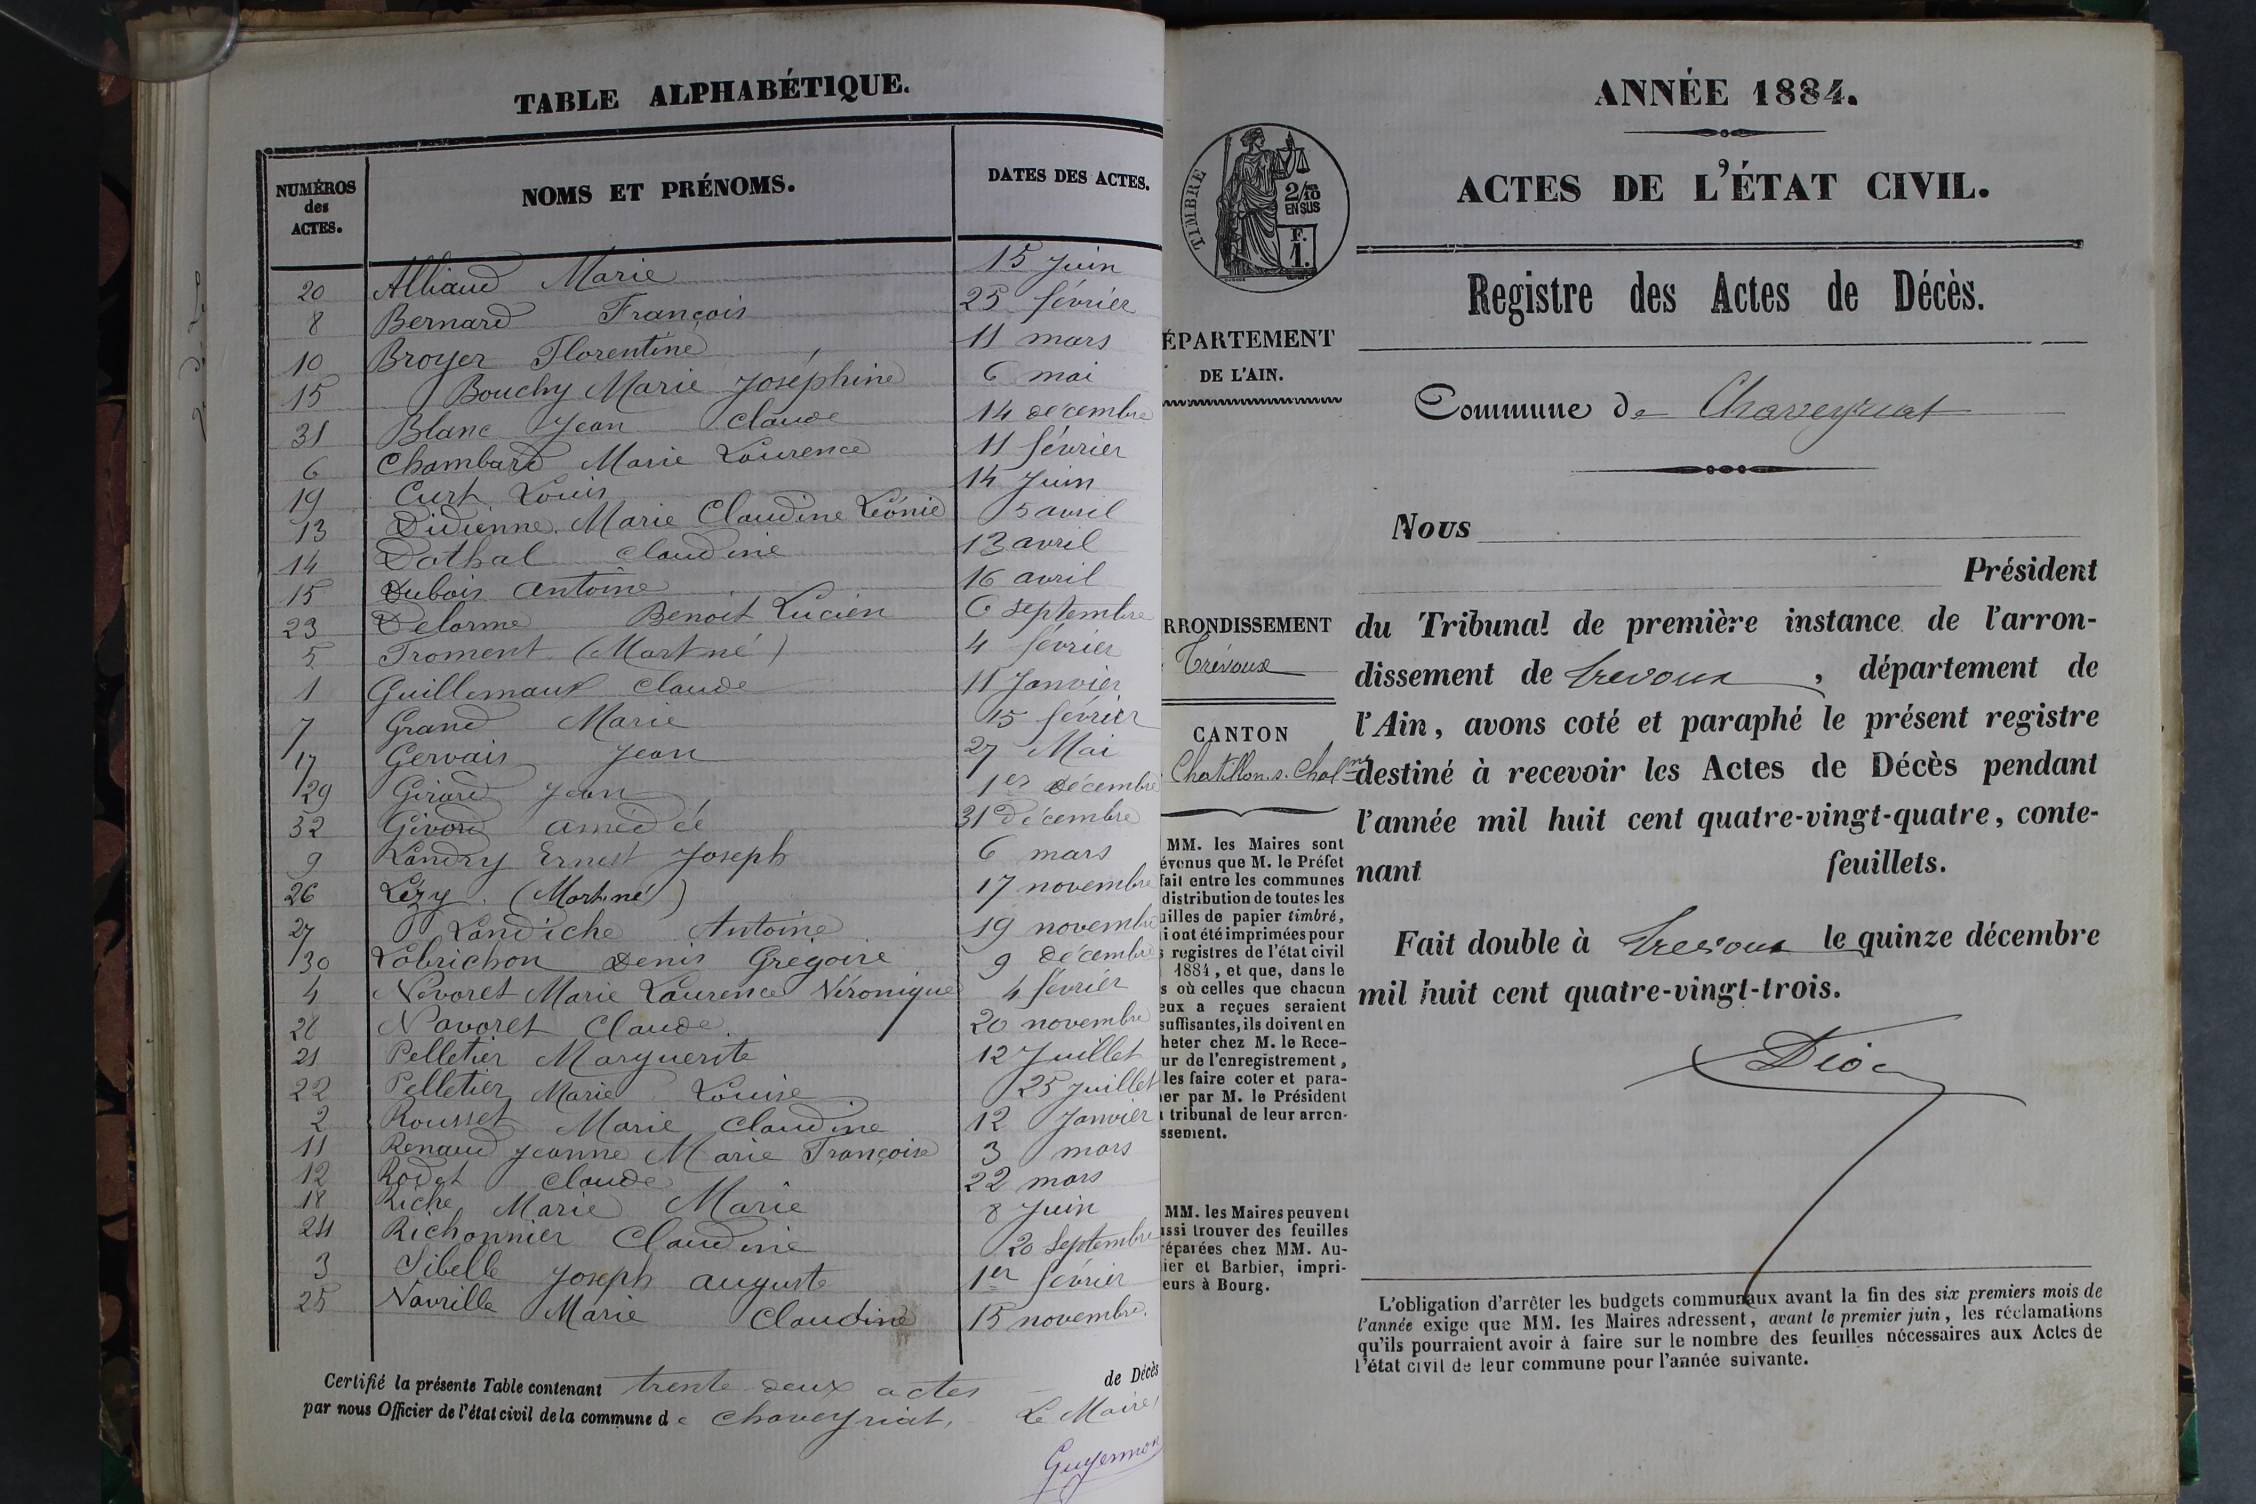 TABLE ALPHABÉTIQUE.
NUMÉROS des ACTES.
NOMS ET PRÉNOMS.
DATES DES ACTES.
20 Alliaud Marie 15 Juin
8 Bernard François 25 février
10 Broyer Florentine 11 mars
15 Bouchy Marie Joséphine 6 mai
31 Blanc Jean Claude 14 décembre
6 Chambard Marie Laurence 11 février
19 Curt Louis 14 Juin
13 Didienne Marie Claudine Léonie 5 avril
14 Dothal Claudine 13 avril
15 Dubois Antoine 16 avril
23 Delorme Benoit Lucien 6 septembre
5 Froment (Mort né) 4 février
1 Guillemaux Claude 11 Janvier
7 Grand Marie 15 février
17 Gervais Jean 27 Mai
29 Girard Jean 1er décembre
32 Givord Amédée 31 Décembre
9 Landry Ernest Joseph 6 mars
26 Lézy (Mort né) 17 novembre
27 Landiche Antoine 19 novembre
30 Labrichon Denis Grégoire 9 décembre
4 Nevoret Marie Laurence Véronique 4 février
28 Navoret Claude. 20 novembre
21 Pelletier Marguerite 12 Juillet
22 Pelletier Marie Louise 25 Juillet
2 Rousset Marie Claudine 12 Janvier
11 Renaud Jeanne Marie Françoise 3 mars
12 Rodet Claude 22 mars
18 Riche Marie Marie 8 Juin
24 Richonnier Claudine 20 Septembre
3 Sibelle Joseph Auguste 1er février
25 Navrille Marie Claudine 15 novembre.
Certifié la présente Table contenant trente deux actes de Décès
par nous Officier de l'état civil de la commune de Chaveyriat, Le Maire,
Guyermon
ANNÉE 1884.
ACTES DE L'ÉTAT CIVIL.
TIMBRE
2/10 EN SUS
F. 1.
Registre des Actes de Décès.
ÉPARTEMENT
DE L'AIN.
Commune de Chaveyriat
Nous
Président
RRONDISSEMENT
Trévoux
CANTON
Chatillon s. Chal.ne
du Tribunal de première instance de l'arron-
dissement de Trevoux, département de
l'Ain, avons coté et paraphé le présent registre
destiné à recevoir les Actes de Décès pendant
l'année mil huit cent quatre-vingt-quatre, conte-
nant feuillets.
Fait double à Trevoux le quinze décembre
mil huit cent quatre-vingt-trois.
MM. les Maires sont
évenus que M. le Préfet
fait entre les communes
distribution de toutes les
uilles de papier timbré,
i ont été imprimées pour
s registres de l'état civil
1884, et que, dans le
s où celles que chacun
eux a reçues seraient
suffisantes, ils doivent en
heter chez M. le Rece-
ur de l'enregistrement,
les faire coter et para-
er par M. le Président
tribunal de leur arron-
ssement.
MM. les Maires peuvent
ussi trouver des feuilles
réparées chez MM. Au-
ier et Barbier, impri-
eurs à Bourg.
L'obligation d'arrêter les budgets communaux avant la fin des six premiers mois de
l'année exige que MM. les Maires adressent, avant le premier juin, les réclamations
qu'ils pourraient avoir à faire sur le nombre des feuilles nécessaires aux Actes de
l'état civil de leur commune pour l'année suivante.